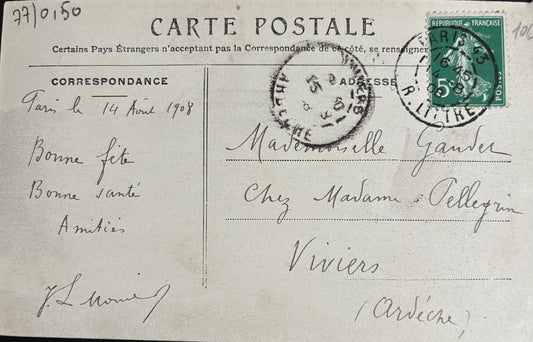 77/0,50
10€
CARTE POSTALE
Certains Pays Étrangers n'acceptant pas la Correspondance de ce côté, se renseigner
CORRESPONDANCE
ADRESSE
RÉPUBLIQUE FRANÇAISE
5c
POSTES
PARIS 43
R. LITTRÉ
VIVIERS
ARDÈCHE
Paris le 14 Août 1908
Bonne fête
Bonne santé
Amitiés
Mademoiselle Gauder
Chez Madame Pellegrin
Viviers
(Ardèche)